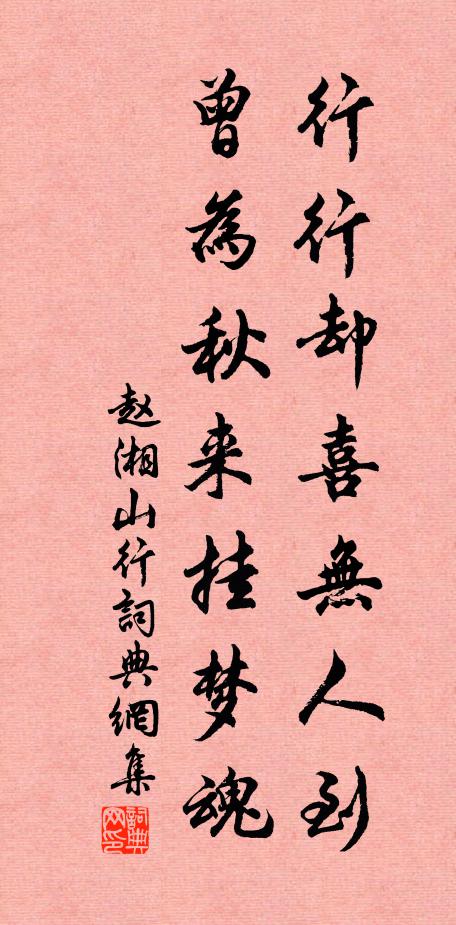 行行却喜無人到
曾為秋来挂梦魂
赵湘山行詞典網集
詞典网印